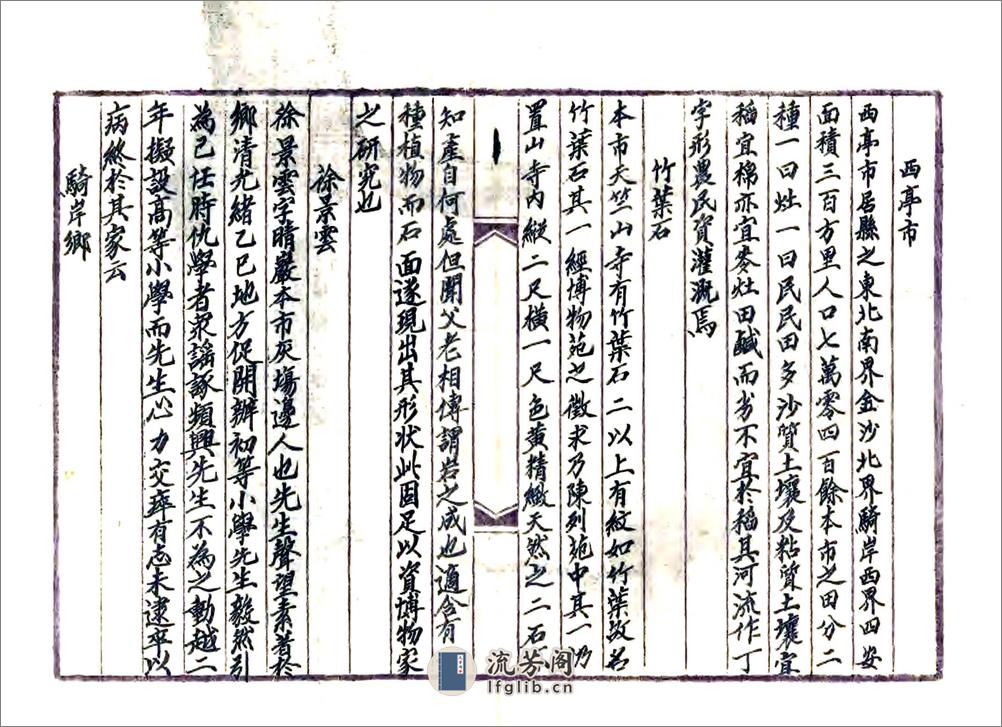 西亭市
西亭市居縣之東北南界金沙北界騎岸西界四安
面積三百方里人口七萬零四百餘本市之田分二
種一曰灶一曰民民田多沙質土壤及粘質土壤宜
稻宜棉亦宜麥灶田鹹而劣不宜於稻其河流作丁
字形農民資灌溉焉
竹葉石
本市天竺山寺有竹葉石二以上有紋如竹葉故名
竹葉石其一經博物苑之徵求乃陳列苑中其一乃
置山寺內縱二尺橫一尺色黄精緻天然之二石
知產自何處但聞父老相傳謂岩之成也適含有
種植物而石面遂現出其形状此固足以資博物家
之研究也
徐景雲
徐景雲字晴巖本市灰塲邊人也先生聲望素著於
鄉清光緒乙巳地方促開辦初等小學先生毅然引
為己任時仇學者衆謡諑頻興先生不為之動越二
年擬設高等小學而先生心力交瘁有志未逮卒以
病終於其家云
騎岸鄉
流芳阁
lfglib.cn